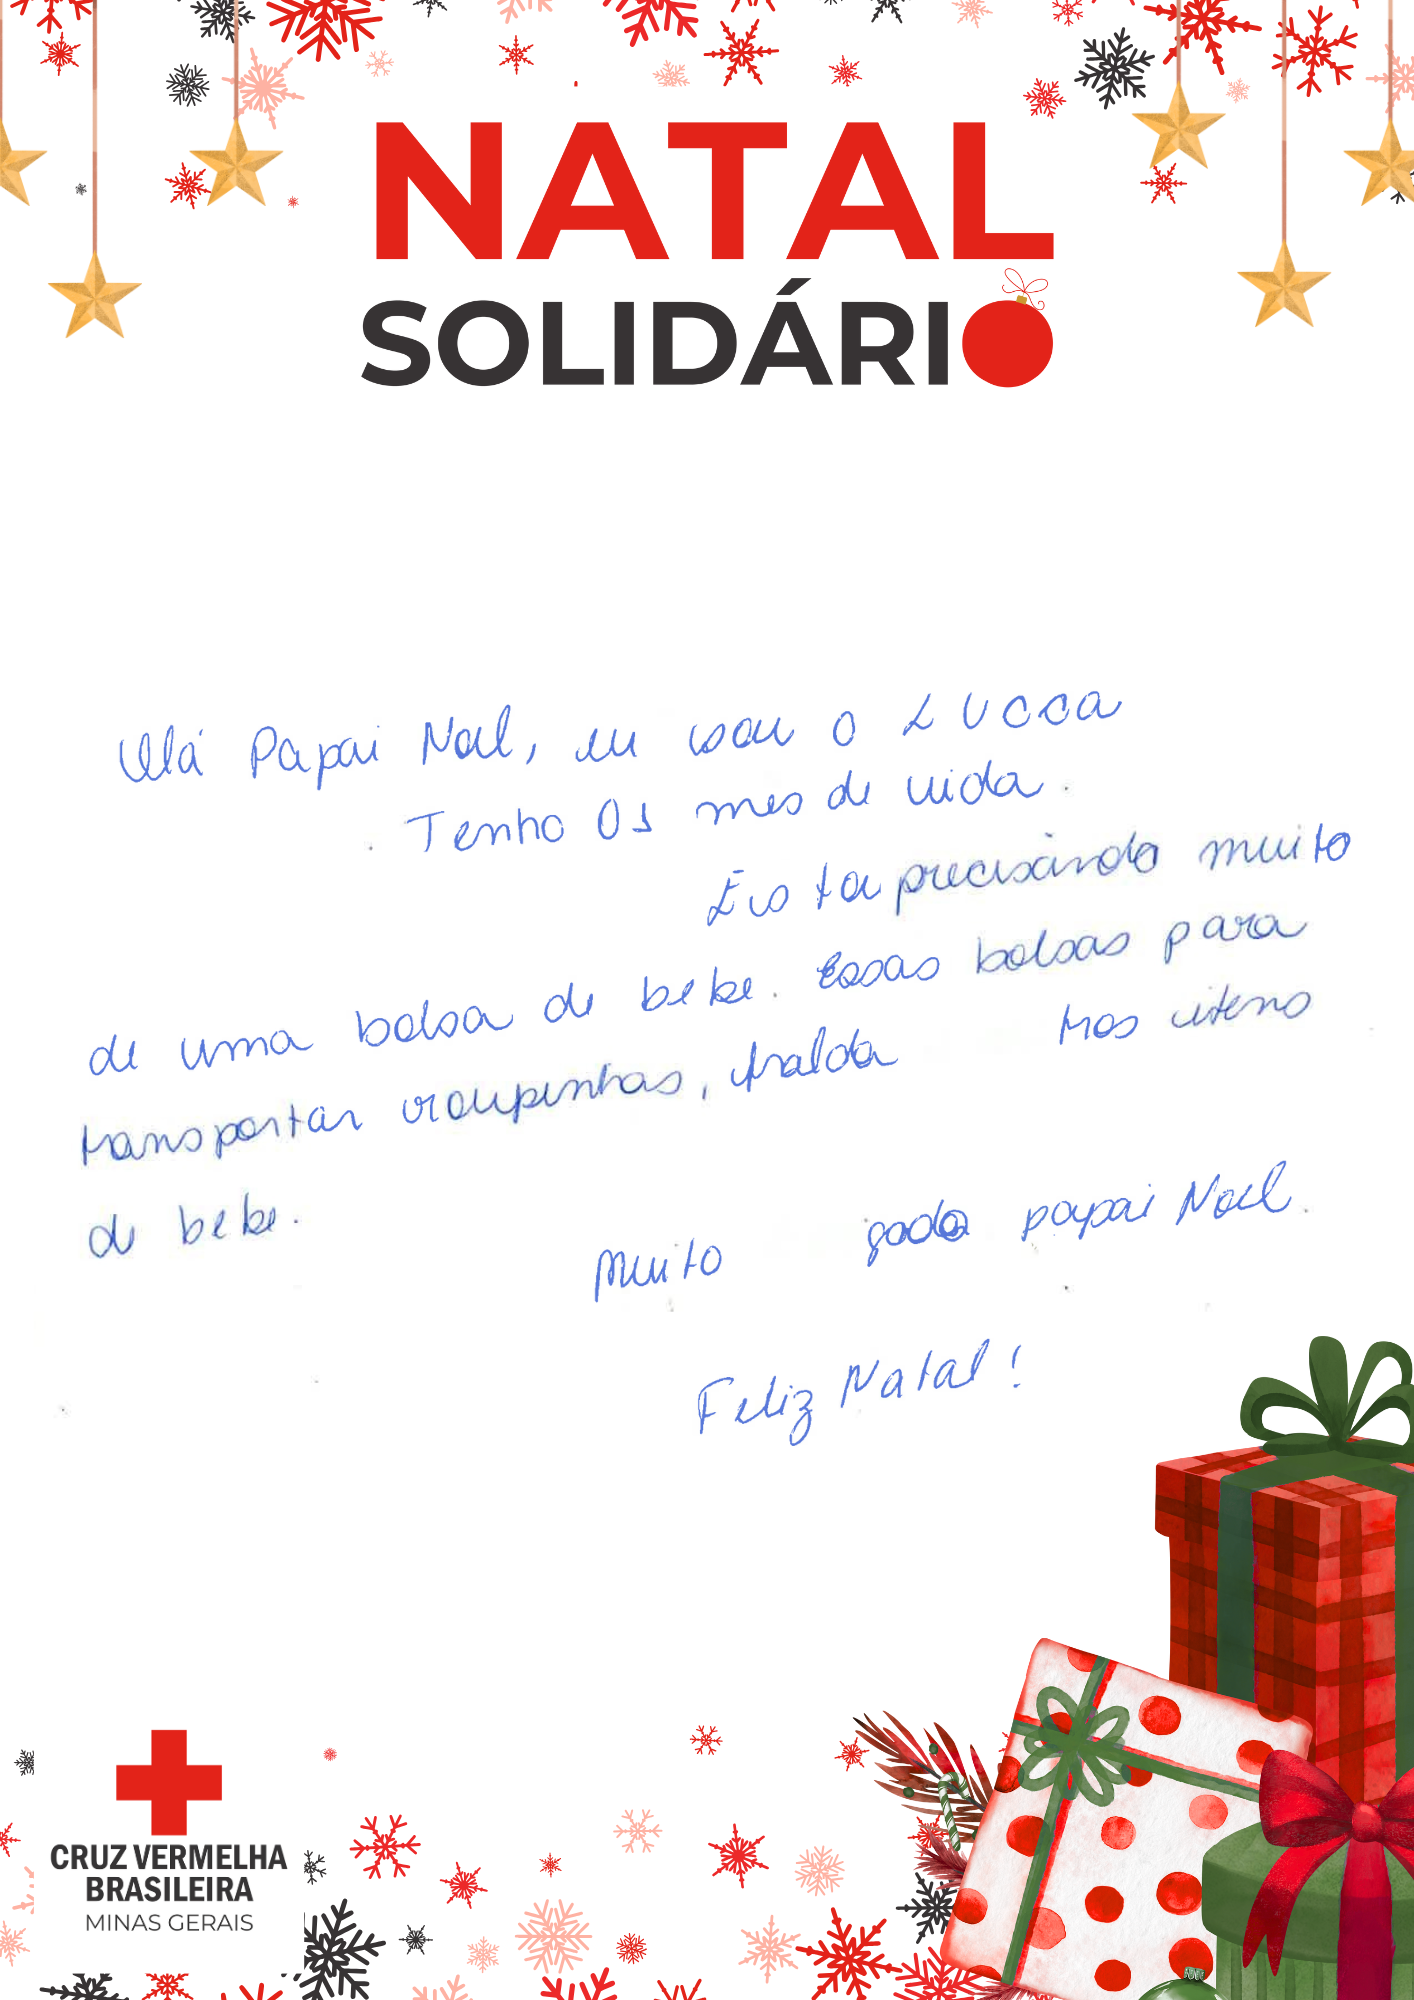 NATAL
SOLIDÁRIO
Olá Papai Noel, eu sou o LUcca
Tenho 01 mes de vida.
Estou precisando muito
de uma bolsa de bebe. Essas bolsas para
transportar roupinhas, fralda nos itens
de bebe.
Muito gado papai Noel.
Feliz Natal!
CRUZ VERMELHA
BRASILEIRA
MINAS GERAIS